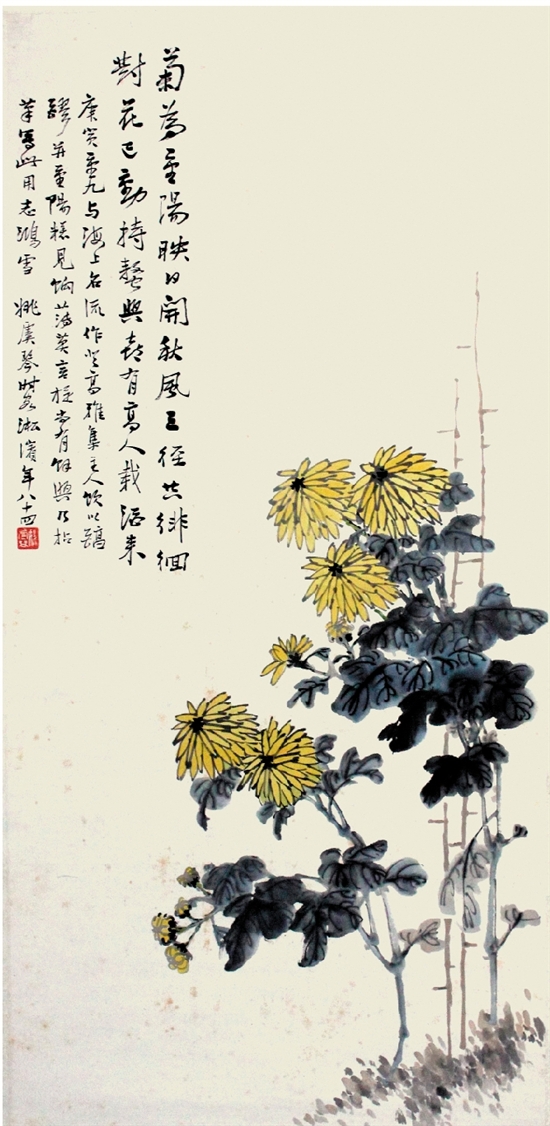 菊為重陽映日開秋風三徑共徘徊
對花已動持螯興喜有高人載酒来
庚寅重九与海上名流作登高雅集主人飲以
醪并重陽糕見餉薄莫言旋尚有餘興乃拈
筆寫此用志鴻雪 姚虞琴時客淞濱年八十四